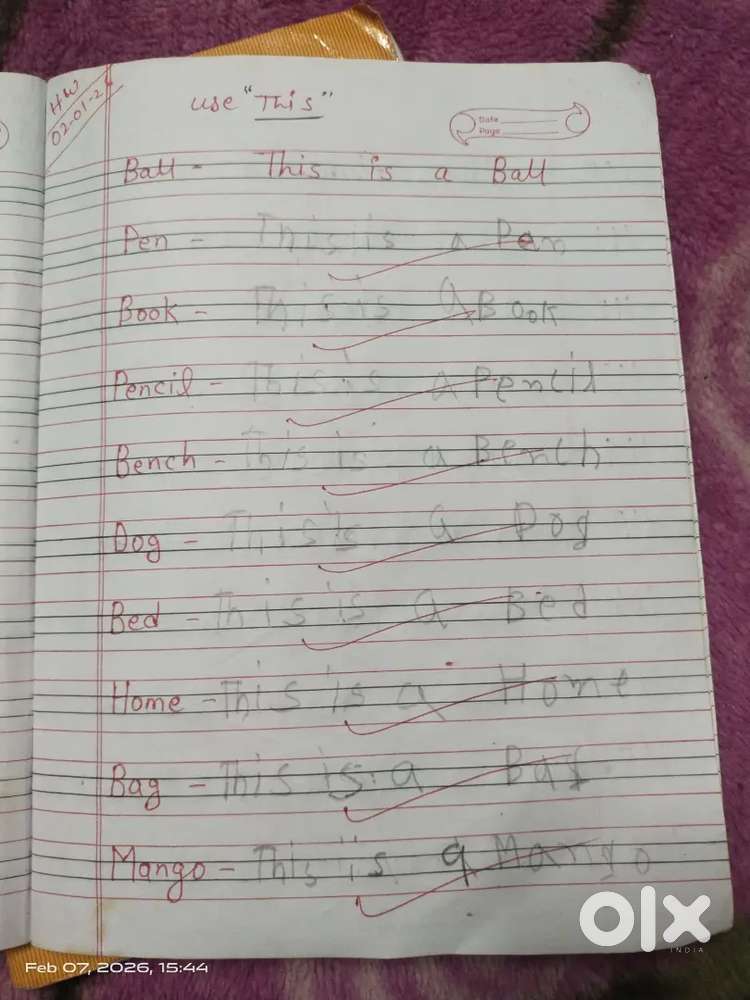 HW
02-01-2
use "This"
Date
Page
Ball - This is a Ball
Pen - This is a Pen
Book - This is a Book
Pencil - This is a Pencil
Bench - This is a Bench
Dog - This is a Dog
Bed - This is a Bed
Home - This is a Home
Bag - This is a Bag
Mango - This is a Mango
olx
INDIA
Feb 07, 2026, 15:44